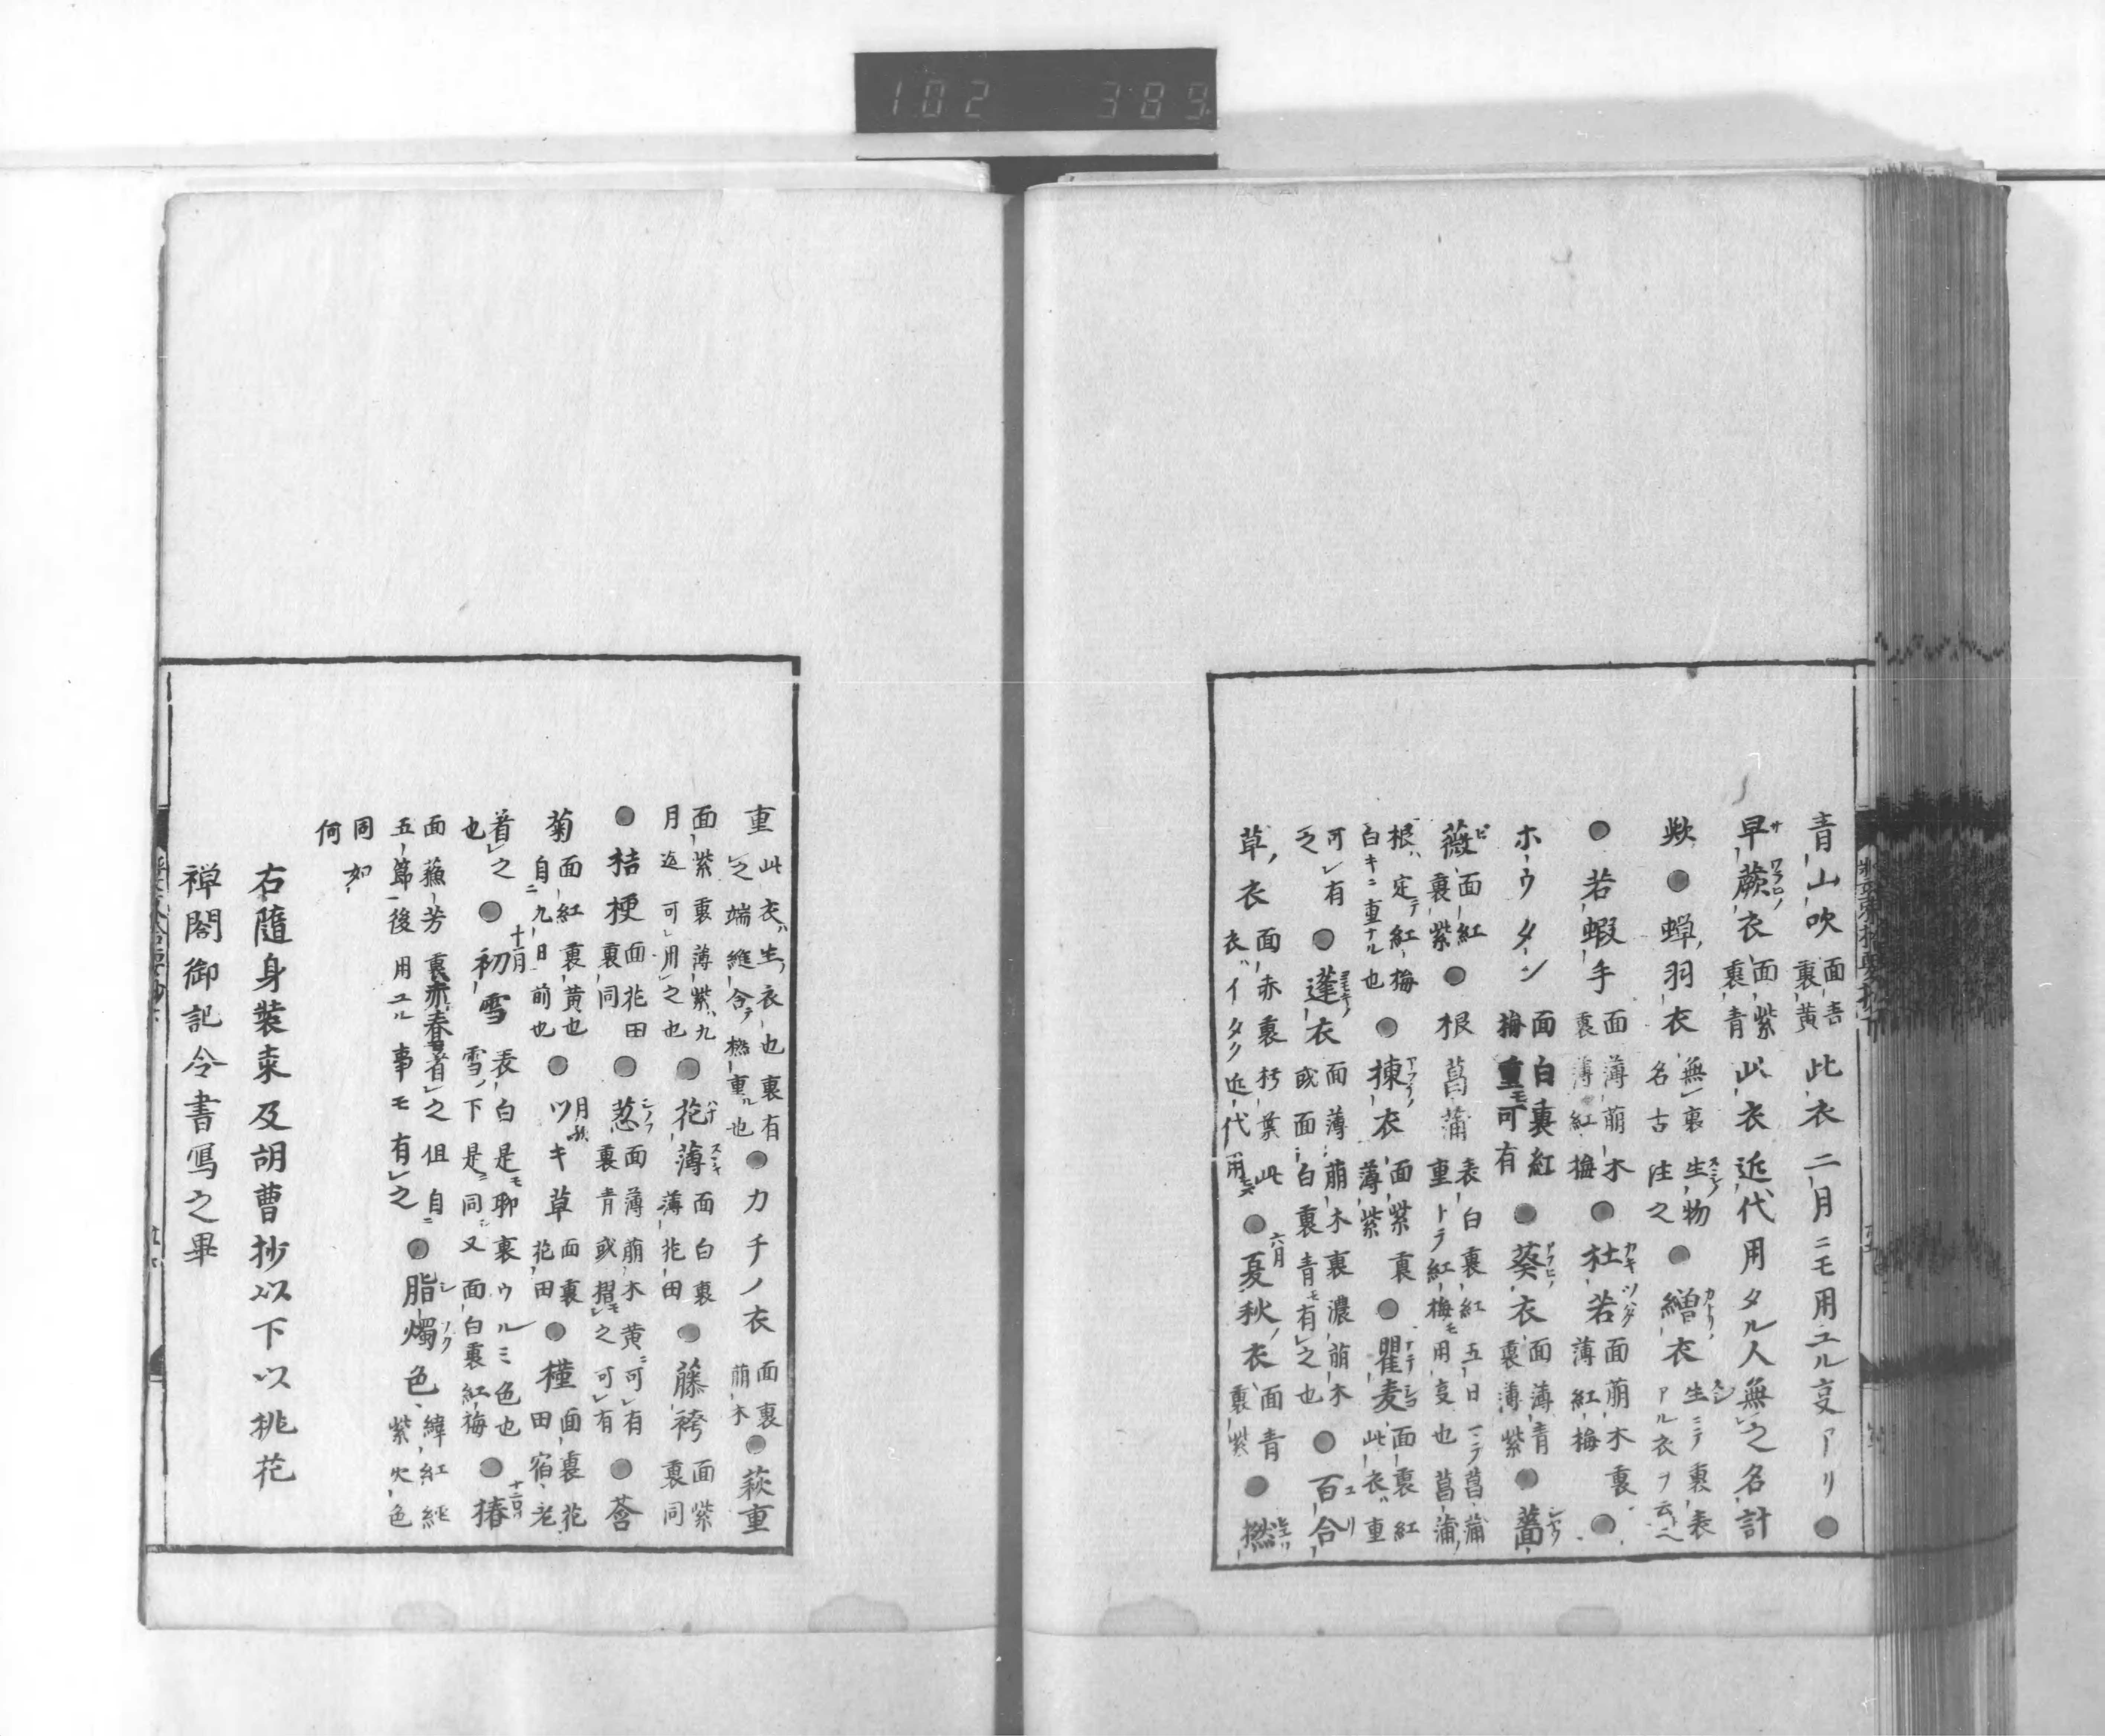 102 389
青山吹 面青 裏黄 此衣二月ニモ用ユル㕝アリ●
早蕨衣 面紫 裏青 此衣近代用タル人無之名計
歟●蝉羽衣 無裏生物 名古注之 ●繒衣 生ニテ裏表 アル衣ヲ云ヘ
●若蝦手 面薄萠木 裏薄紅梅 ●杜若 面萠木裏 薄紅梅 ●
ホウタン 面白裏紅 梅重モ可有 ●葵衣 面薄青 裏薄紫 ●薔
薇 面紅 裏紫 ●根菖蒲 表白裏紅五日ニテ菖蒲 重トテ紅梅モ用㕝也菖蒲
根ハ定テ紅梅 白キニ重ナル也 ●楝衣 面紫裏 薄紫 ●瞿麦 面裏紅 此衣ハ重
可有 之 ●蓬衣 面薄萠木裏濃萠木 或面白裏青モ有之也 ●百合
草衣 面赤裏朽葉此 衣ハイタク近代用 ●夏秋衣 面青 裏紫 ●撚
重 此衣ハ生衣也裏有 之端縫合テ撚重ル也 ●カチノ衣 面裏 萠木 ●萩重
面紫裏薄紫九 月迄可用之也 ●花薄 面白裏 薄花田 ●藤袴 面紫 裏同
●桔梗 面花田 裏同 ●荵 面薄萠木黄ニ可有 裏青或摺モ之可有 ●荅
菊 面紅裏黄也 自九日前也 ●ツキ草 面裏 花田 ●槿 面裏花 田宿老
着之 也 ●初雪 表白是モ聊裏ウルミ色也 雪ノ下是ニ同ニ又面白裏紅梅 ●椿
面蘇芳裏赤春着之但自 五節後用ユル事モ有之 ●脂燭色 緯紅経 紫火色
同如
何
右隨身装束及胡曹抄以下以桃花
禅閤御記令書寫之畢